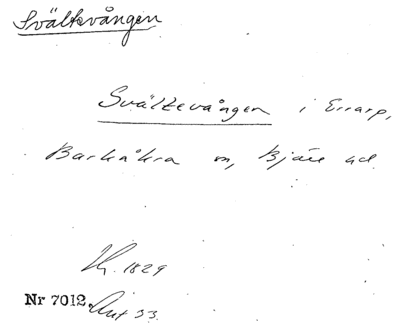 Svältevången
Svältevången i Errarp,
Barkåkra sn, Bjäre hd.
1829
Nr 7012. Akt 33.